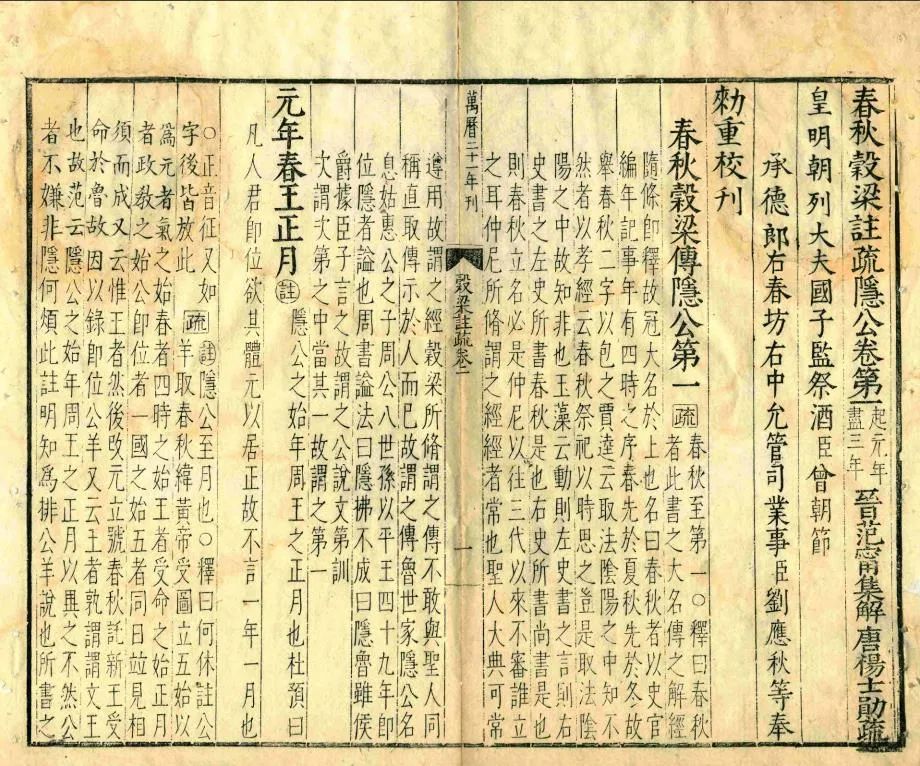 春秋穀梁註疏隱公卷第一起元年盡三年 晉范甯集解 唐楊士勛疏
皇明朝列大夫國子監祭酒臣曾朝節
承德郎右春坊右中允管司業事臣劉應秋等奉
勑重校刊
春秋穀梁傳隱公第一 疏 春秋至第一○釋曰春秋
者此書之大名傳之解經
隨條即釋故冠大名於上也名曰春秋者以史官
編年記事年有四時之序春先於夏秋先於冬故
舉春秋二字以包之賈逵云取法陰陽之中知不
然者以孝經云春秋祭祀以時思之豈是取法陰
陽之中故知非也王藻云動則左史書之言則右
史書之左史所書春秋是也右史所書尚書是也
則春秋立名必是仲尼以往三代以來不審誰立
之耳仲尼所脩謂之經經者常也聖人大典可常
萬曆二十一年刊
穀梁註疏卷一
一
遵用故謂之經穀梁所脩謂之傳不敢與聖人同
稱直取傳示於人而已故謂之傳魯世家隱公名
息姑惠公之子周公八世孫以平王四十九年即
位隱者謚也周書謚法曰隱拂不成曰隱魯雖侯
爵據臣子言之故謂之公說文第訓
次謂次第之中當其一故謂之第一
元年春王正月 註 隱公之始年周王之正月也杜預曰
凡人君即位欲其體元以居正故不言一年一月也
○正音征又如字後皆放此 疏 註隱公至月也○釋曰何休註公
羊取春秋緯黃帝受圖立五始以
爲元者氣之始春者四時之始王者受命之始正月
者政教之始公即位者一國之始五者同日竝見相
須而成又云惟王者然後改元立號春秋託新王受
命於魯故因以錄即位公羊又云王者孰謂謂文王
也故范云隱公之始年周王之正月以異之不然公
者不嫌非隱何煩此註明知爲排公羊說也所書之